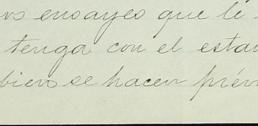 os ensayes que li
tenga con el estan
bien se hacen prév